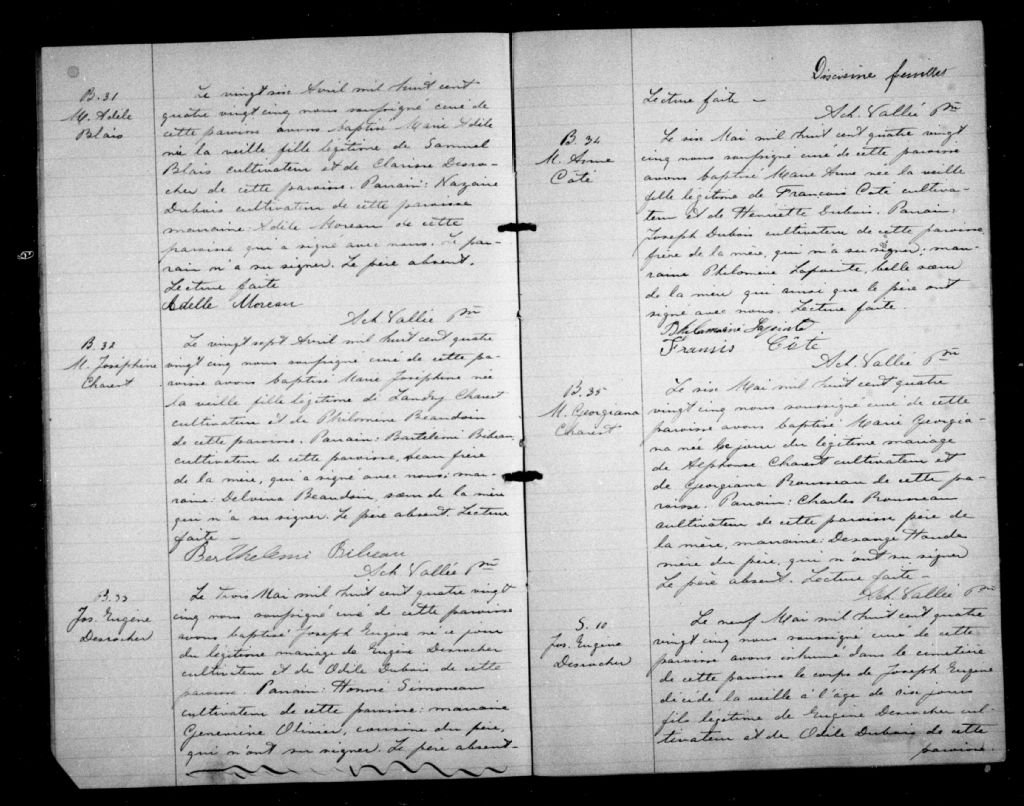 B. 31
M. Adèle
Blais
Le vingt six Avril mil huit cent
quatre vingt cinq nous soussigné curé de
cette paroisse avons baptisé Marie Adèle
née la veille fille légitime de Samuel
Blais cultivateur et de Clarisse Desro-
cher de cette paroisse. Parrain: Nazaire
Dubois cultivateur de cette paroisse
marraine: Adèle Moreau de cette
paroisse qui a signé avec nous. Le par-
rain n'a su signer. Le père absent.
Lecture faite
Adelle Moreau
Ach. Vallée Ptre
B. 32
M. Joséphine
Charest
Le vingt sept Avril mil huit cent quatre
vingt cinq nous soussigné curé de cette pa-
roisse avons baptisé Marie Joséphine née
la veille fille légitime de Landry Charest
cultivateur et de Philomène Beaudoin
de cette paroisse. Parrain: Bartélémi Bibeau,
cultivateur de cette paroisse, beau frère
de la mère, qui a signé avec nous; mar-
raine: Delvina Beaudoin, sœur de la mère
qui n'a su signer. Le père absent. Lecture
faite —
Berthelemi Bibeau
Ach. Vallée Ptre
B. 33
Jos. Eugène
Desrocher
Le trois Mai mil huit cent quatre vingt
cinq nous soussigné curé de cette paroisse
avons baptisé Joseph Eugène né ce jour
du légitime mariage de Eugène Desrocher
cultivateur et de Odile Dubois de cette
paroisse. Parrain: Honoré Simoneau
cultivateur de cette paroisse: marraine
Geneviève Olivier, cousine du père,
qui n'ont su signer. Le père absent-
feuilles
Lecture faite —
Ach. Vallée Ptre
B. 34
M. Anne
Côté
Le six Mai mil huit cent quatre vingt
cinq nous soussigné curé de cette paroisse
avons baptisé Marie Anne née la veille
fille légitime de François Coté cultiva-
teur et de Henriette Dubois. Parrain:
Joseph Dubois cultivateur de cette paroisse,
frère de la mère, qui n'a su signer; mar-
raine Philomène Lapointe, belle sœur
de la mère qui ainsi que le père ont
signé avec nous. Lecture faite.
Lapointe
Fransis Côte
Ach. Vallée Ptre
B. 35
M. Georgiana
Charest
Le six Mai mil huit cent quatre
vingt cinq nous soussigné curé de cette
paroisse avons baptisé Marie Georgia-
na née ce jour du légitime mariage
de Alphonse Charest cultivateur et
de Georgiana Rousseau de cette pa-
roisse. Parrain: Charles Rousseau
cultivateur de cette paroisse père de
la mère, marraine: Desange Houde
mère du père, qui n'ont su signer
Le père absent. Lecture faite —
Ach. Vallée Ptre
S. 10
Jos. Eugène
Desrocher
Le neuf Mai mil huit cent quatre
vingt cinq nous soussigné curé de cette
paroisse avons inhumé dans le cimetière
de cette paroisse le corps de Joseph Eugène
décédé la veille à l'âge de six jours
fils légitime de Eugène Desrocher cul-
tivateur et de Odile Dubois de cette
paroisse.